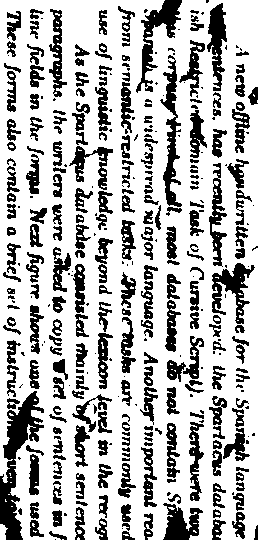 A new offline handwritten database for the Spanish language
sentences, has recently been developed: the Spartacus databa
ish Restricted-domain Task of Cursive Script). There were two
this corpus. First of all, most databases do not contain Sp
Spanish is a widespread major language. Another important rea
from semantic-restricted tasks. These tasks are commonly used
use of linguistic knowledge beyond the lexicon level in the recog
As the Spartacus database consisted mainly of short sentence
paragraphs, the writers were asked to copy a set of sentences in f
line fields in the forms. Next figure shows one of the forms used
These forms also contain a brief set of instructions given to